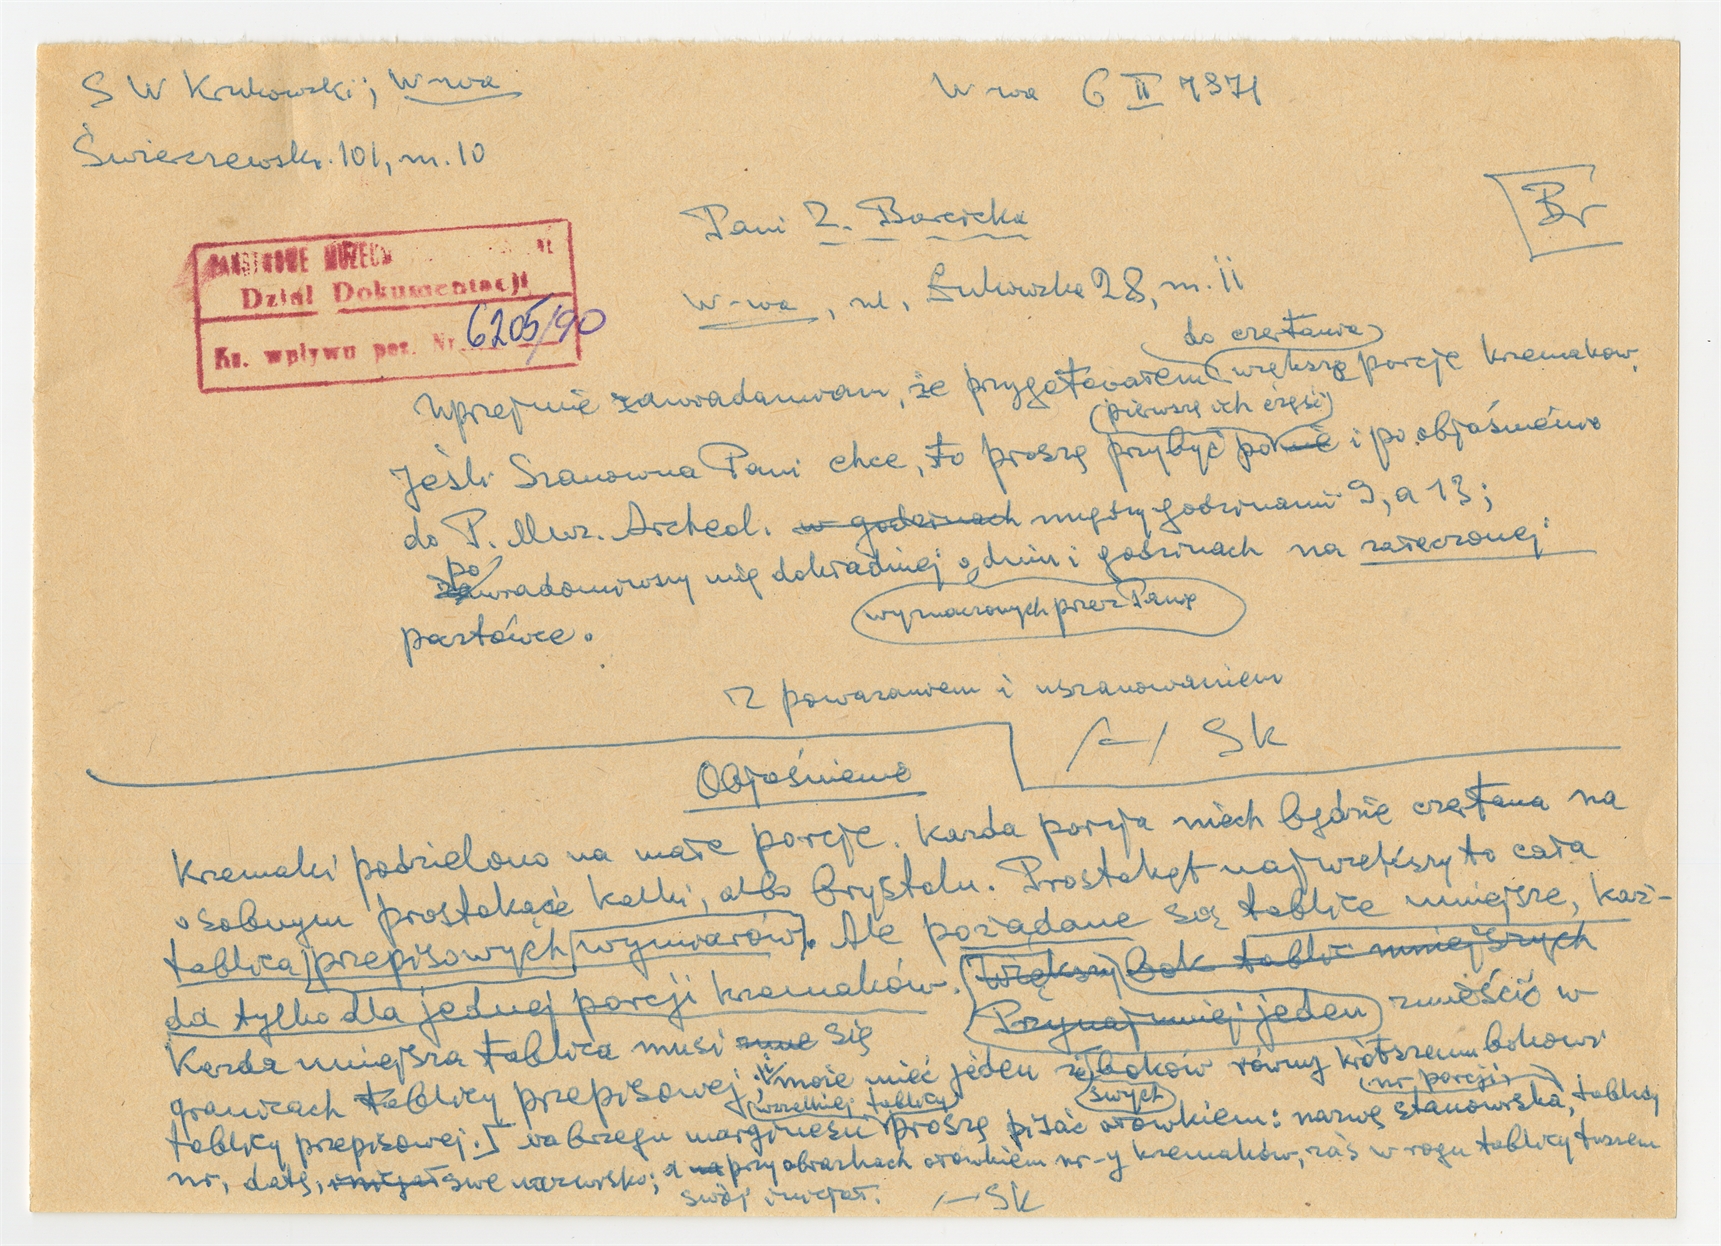 S W Krukowski; W-wa
W-wa 6 II 1971
Świerczewsk. 101, m. 10
Br
Pani Z. Barcicka
PAŃSTWOWE MUZEUM
Dział Dokumentacji
W-wa, ul. Łukowska 28, m. 11
Ks. wpływu poz. Nr 6205/90
do czerłania
Uprzejmie zawiadamiam, że przygotowałem większą porcję krzemaków.
(pierwszą ich część)
Jeśli Szanowna Pani chce, to proszę przybyć po nie i po objaśnienia
do P. Muz. Archeol. w godzinach między godzinami 9, a 13;
po
zawiadomiwszy mię dokładniej o dniu i godzinach na załączonej
wyznaczonych przez Panią
pocztówce.
Z poważaniem i uszanowaniem
/-/ SK
Objaśnienie
Krzemaki podzielono na małe porcje. Każda porcja niech będzie czerłana na
osobnym prostokącie kalki, albo brystolu. Prostokąt największy to cała
tablica przepisowych wymiarów. Ale pożądane są tablice mniejsze, każ-
da tylko dla jednej porcji krzemaków. Większy bok tablic mniejszych
Przynajmniej jeden
Każda mniejsza tablica musi się zmieścić w
granicach tablicy przepisowej; i może mieć jeden z boków równy krótszemu bokowi
wszelkiej tablicy
swych
nr porcji
tablicy przepisowej. Na brzegu marginesu proszę pisać ołówkiem: nazwę stanowiska, tablicy
nr, datę, inicjał swe nazwisko; a na przy obrazkach ołówkiem nr-y krzemaków, zaś w rogu tablicy tuszem
swój inicjał. — SK